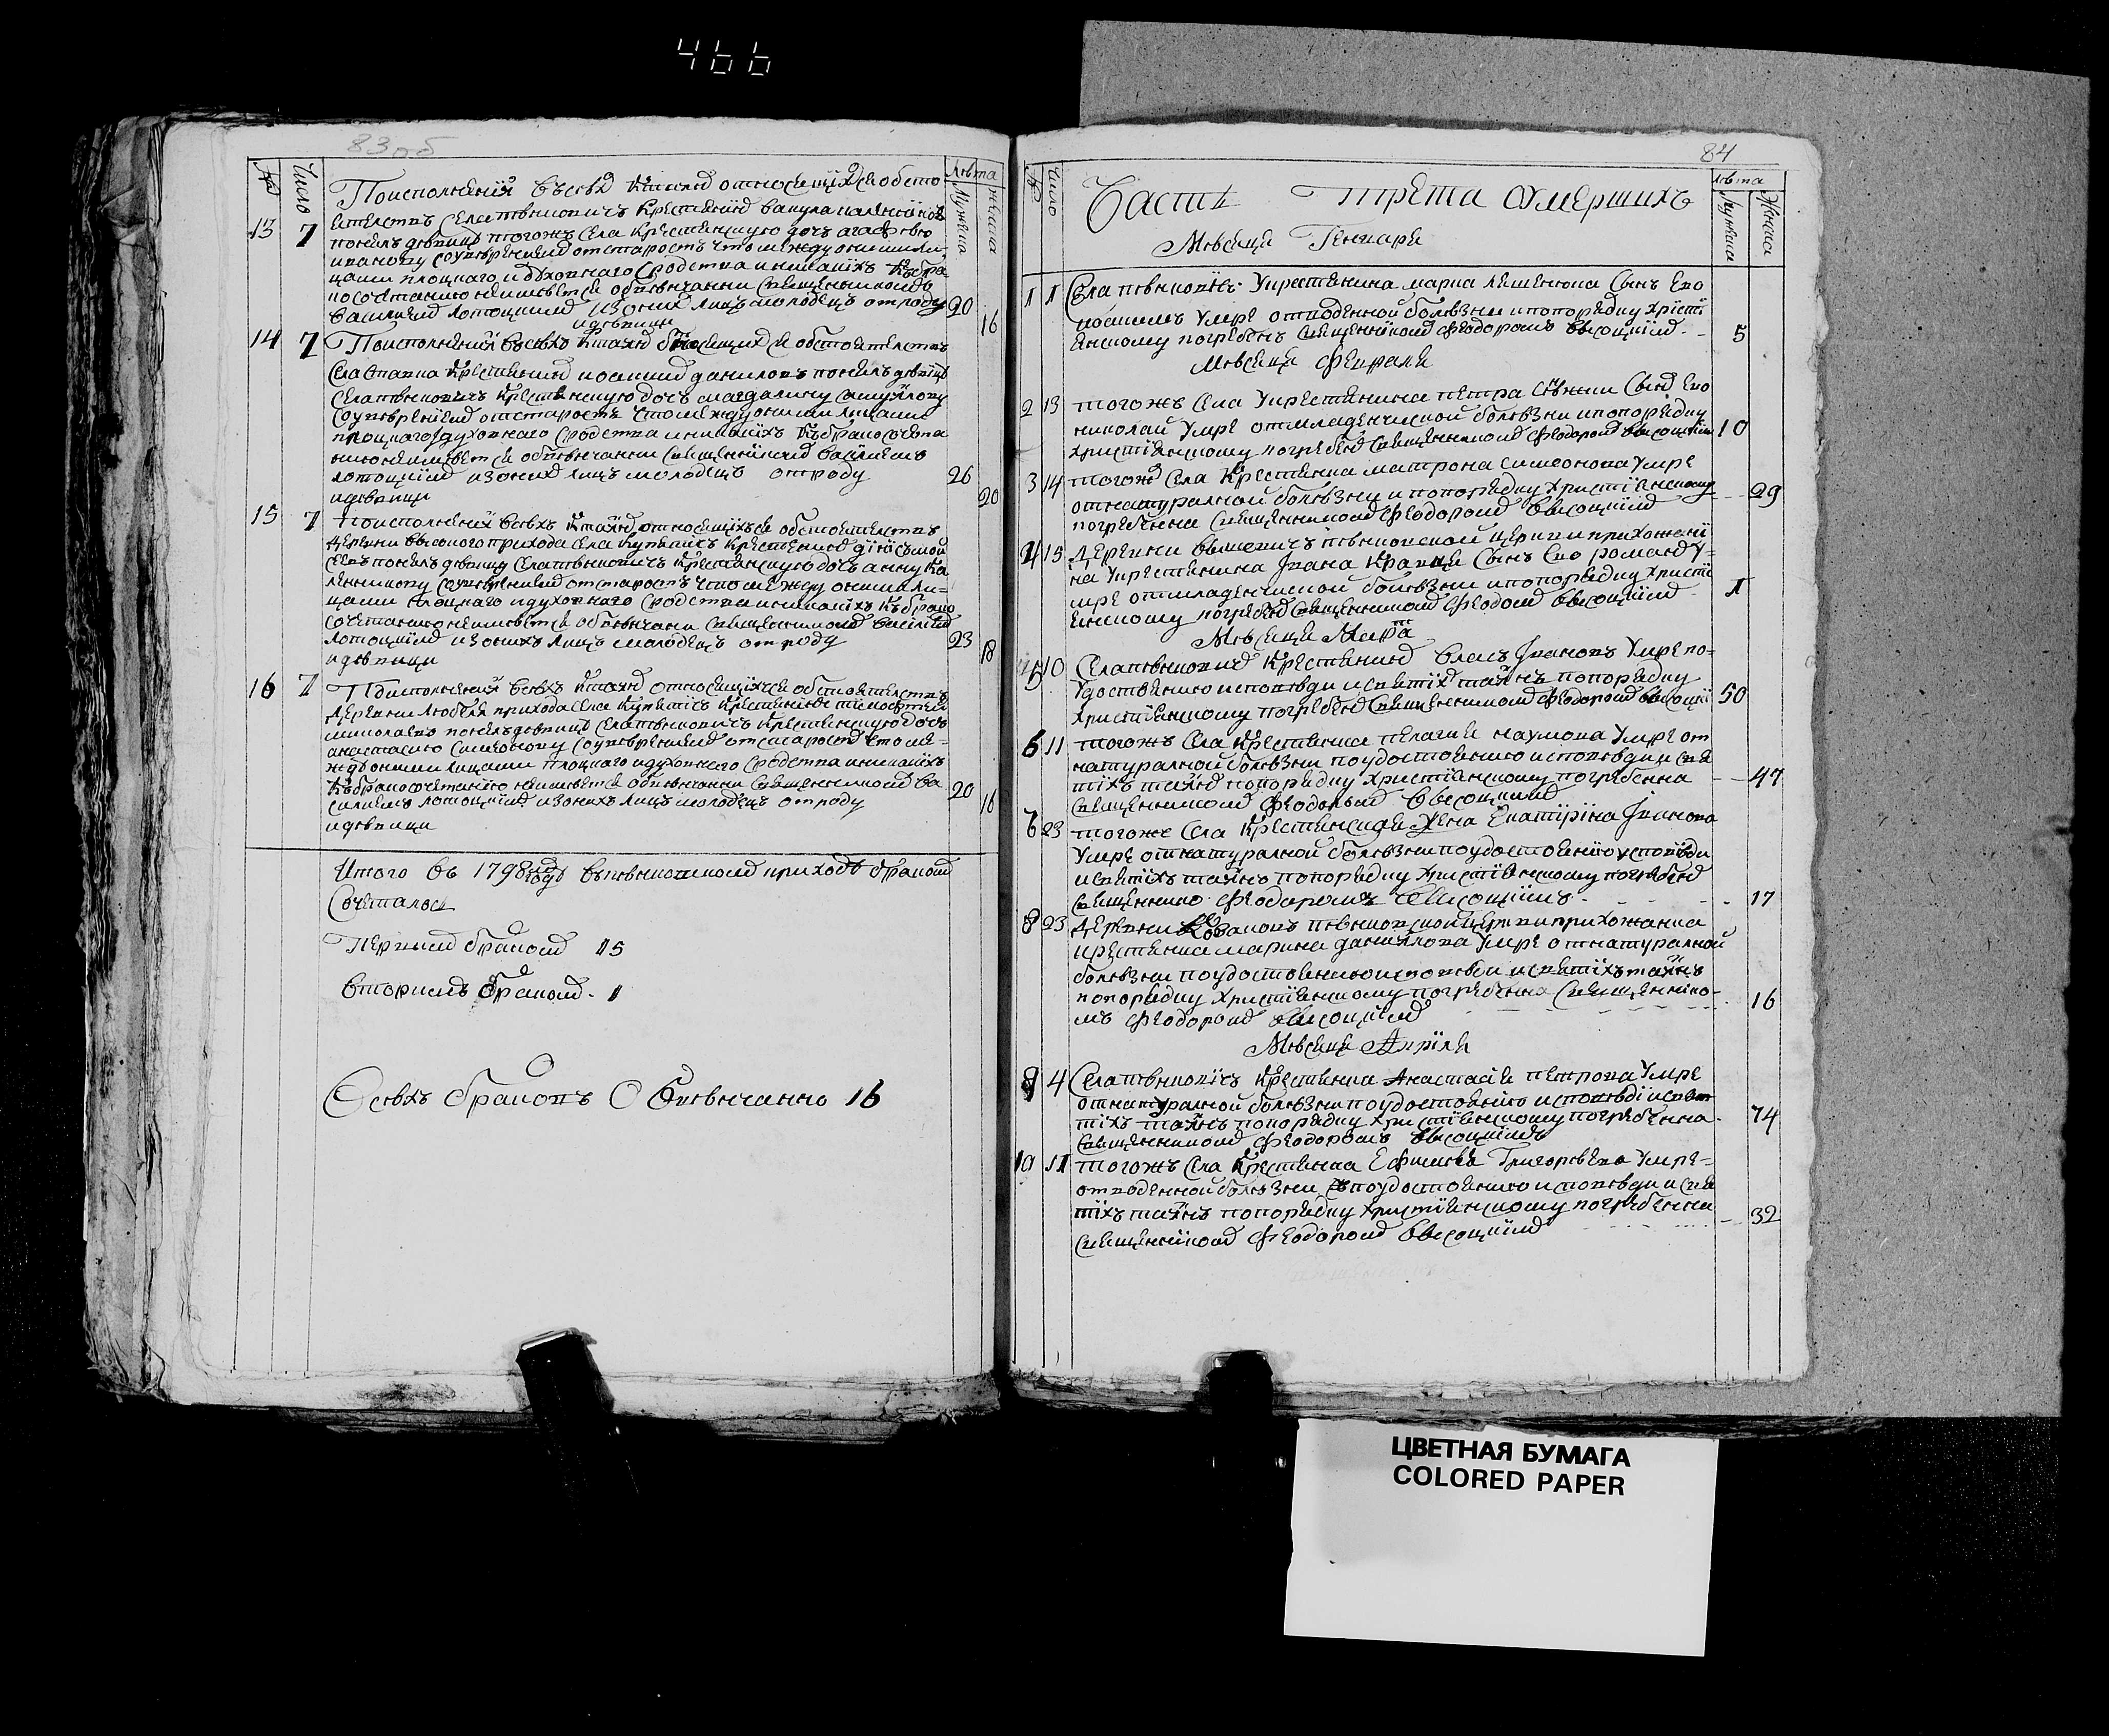 466
83 об
№
Число
Лѣта
Мужеска
женска
Поисполненій всѣхъ ктаинѣ относящихся обсто
13 7
ятелствъ села
крестянинъ вакула
понялъ дѣвицу тогожъ села крестянскую дочь агафію
иванову соувѣреніемъ отстаростъ что между оними ли-
цами плоцкаго идуховнаго сродства иникакихъ къбра
посочетанію неимѣется обвѣнчанни священникомъ
василіемъ лотоцкимъ изонихъ лицъ молодецъ отроду 20
идѣвици 16
14 7 Поисполненій всѣхъ ктаинѣ относящихся обстоятелствъ
села крестянинъ иосифъ даниловъ понялъ дѣвицу
села крестянскую дочь магдалину самуйлову
соувѣреніемъ отстаростъ что между оними лицами
плоцкаго идуховнаго сродства иникакихъ къбрако сочета
нию неимѣется обвѣнчанни священникомъ василіемъ
лотоцкимъ изонихъ лицъ молодецъ отроду 26
идѣвици 20
15 7 Поисполненій всѣхъ ктаинѣ относящихся обстоятелствъ
деревни прихода села крестянинъ
понялъ дѣвицу села крестянскую дочь анну
соувѣреніемъ отстаростъ что между оними ли=
цами плоцкаго идуховнаго сродства иникакихъ къбрако
сочетанию неимѣется обвѣнчани священникомъ василіемъ
лотоцкимъ изонихъ лицъ молодецъ отроду 23
идѣвици 18
16 7 Поисполненій всѣхъ ктаинѣ относящихся обстоятелствъ
деревни прихода села крестянинъ тимофтей
николаевъ понялъ дѣвицу села крестянскую дочь
анастасию симеонову соувѣреніемъ отстаростъ что ме-
ждѣ оними лицами плоцкаго идуховнаго сродства иникакихъ
къбракосочетанію неимѣется обвѣнчанни священникомъ ва
силиемъ лотоцкимъ изонихъ лицъ молодецъ отроду 20
идѣвици 16
Итого въ 1798 годѣ приходѣ бракомъ
Сочеталось
Первимъ бракомъ 15
Вторимъ бракомъ - 1
Всѣхъ браковъ Обвѣнчанно 16
84
№
Число
лѣта
Мужеска
Женска
Часть Трета Умершихъ
Мѣсяца Генваря
1 1 Села крестянина марка сынъ его
умре отводенной болѣзни ипопорядку христі
янскому погребенъ священникомъ феодоромъ висоцкимъ - 5
Мѣсяца Февраля
2 13 тогожъ села крестянина петра сынъ его
николай умре отмладенческой болѣзни ипопорядку
христіянскому погребенъ священникомъ феодоромъ висоцкимъ 10
3 14 тогожъ села крестянка матрона симеонова умре
отнатуралной болѣзни и попорядку христіянскому
погребенна священникомъ феодоромъ висоцкимъ 29
4 15 деревни церкви прихожани
на крестянина Ивана сынъ его романъ у-
мре отмладенческой болѣзни ипопорядку христі
янскому погребенъ священникомъ феодоромъ висоцкимъ 1
Мѣсяца Марта
5 10 Села крестянинъ власъ Ивановъ умре по-
удостоению исповѣди исвятихъ таинъ попорядку
христіянскому погребенъ священникомъ феодоромъ висоцкі 50
6 11 тогожъ села крестянка пелагия наумова умре от
натуралной болѣзни поудостоению исповѣди и свя
тихъ таинъ попорядку христіянскому погребенна 47
священникомъ феодоромъ висоцкимъ
23 тогоже села крестянская жена Екатиріна Иванова
умре отнатуралной болѣзни поудостоенію исповѣди
исвятихъ таинъ попорядку христіянскому погребена
священнико феодоромъ Висоцкимъ - - - 17
8 23 деревни церкви прихожанка
крестянка марина данилова умре отнатуралной
болѣзни поудостоению исповѣди исвятихъ таинъ
попорядку христіянскому погребенна священнико- 16
мъ феодоромъ висоцкимъ
Мѣсяца Апріля
9 4 Села крестянка Анастасія петрова умре
отнатуралной болѣзни поудостоенію исповѣді исвят
тихъ таинъ попорядку христіянскому погребенна 74
священникомъ феодоромъ висоцкимъ
10 11 тогожъ села крестянка Григорѣева умре=
отводенной болѣзни поудостоению исповѣди исвя
тихъ таинъ попорядку христіянскому погребенна 32
священникомъ феодоромъ висоцкимъ
ЦВЕТНАЯ БУМАГА
COLORED PAPER